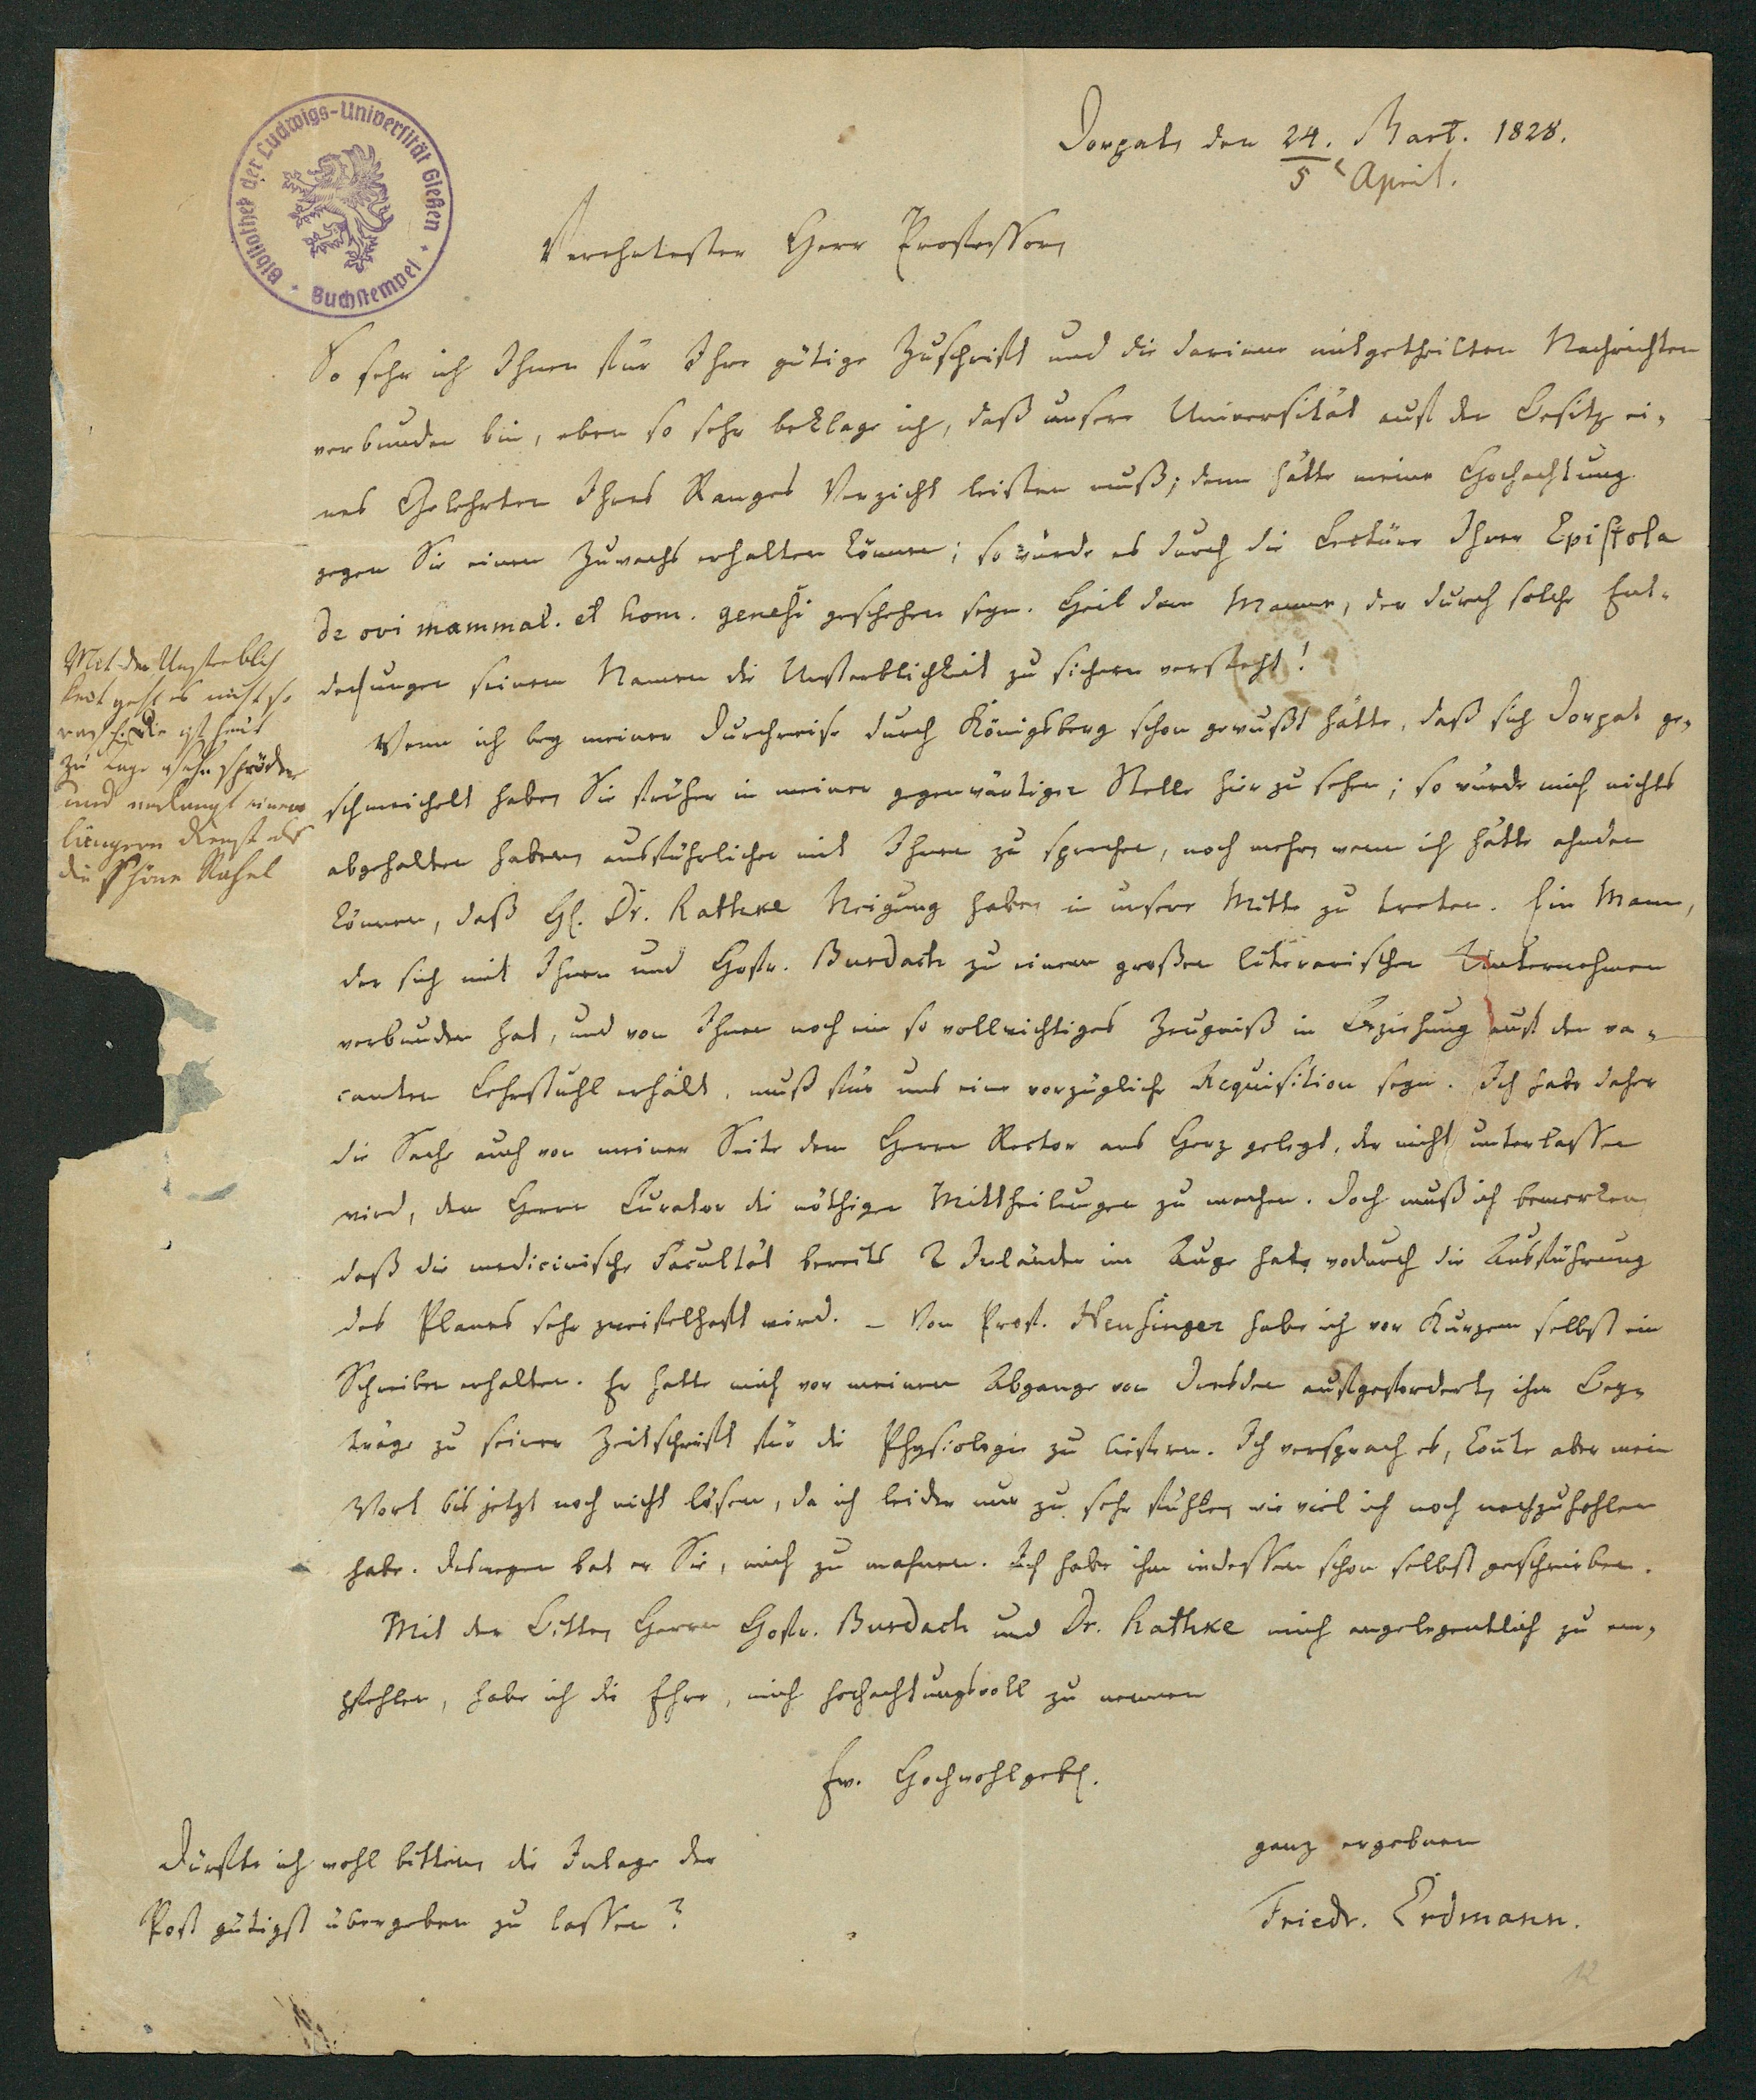 Bibliothek der Ludwigs-Universität Gießen
* Buchstempel *
Dorpat, den 24. Mart. 1828.
5 April.
Verehrtester Herr Professor,
So sehr ich Ihnen für Ihre gütige Zuschrift und die darinne mitgetheilten Nachrichten
verbunden bin, eben so sehr beklage ich, daß unsere Universität auf den Besitz ei-
nes Gelehrten Ihres Ranges Verzicht leisten muß; denn hätte meine Hochachtung
gegen Sie einen Zuwachs erhalten können; so würde es durch die Lectüre Ihrer Epistola
de ovi mammal. et hom. genesi geschehen seyn. Heil dem Manne, der durch solche Ent-
deckungen seinem Namen die Unsterblichkeit zu sichern versteht!
Wenn ich bey meiner Durchreise durch Königsberg schon gewußt hätte, daß sich Dorpat ge-
schmeichelt habe, Sie früher in meiner gegenwärtigen Stelle hier zu sehen; so würde mich nichts
abgehalten haben, ausführlicher mit Ihnen zu sprechen, noch mehr, wenn ich hätte ahnden
können, daß H. Dr. Rathke Neigung habe, in unsere Mitte zu treten. Ein Mann,
der sich mit Ihnen und Hofr. Burdach zu einem großen literarischen Unternehmen
verbunden hat, und von Ihnen noch ein so vollwichtiges Zeugniß in Beziehung auf den va-
canten Lehrstuhl erhält, muß für uns eine vorzügliche Acquisition seyn. Ich habe daher
die Sache auch von meiner Seite dem Herrn Rector ans Herz gelegt, der nicht unterlassen
wird, dem Herrn Curator die nöthigen Mittheilungen zu machen. Doch muß ich bemerken,
daß die medicinische Facultät bereits 2 Inländer im Auge hat, wodurch die Ausführung
des Planes sehr zweifelhaft wird. – Von Prof. Heusinger habe ich vor Kurzem selbst ein
Schreiben erhalten. Er hatte mich vor meinem Abgange von Dresden aufgefordert, ihm Bey-
träge zu seiner Zeitschrift für die Physiologie zu liefern. Ich versprach es, konte aber mein
Wort bis jetzt noch nicht lösen, da ich leider nur zu sehr fühlte, wie viel ich noch nachzuhohlen
habe. Deswegen bat er Sie, mich zu mahnen. Ich habe ihm indessen schon selbst geschrieben.
Mit der Bitte, Herrn Hofr. Burdach und Dr. Rathke mich angelegentlich zu em-
pfehlen, habe ich die Ehre, mich hochachtungsvoll zu nennen
Ew. Hochwohlgeb.
ganz ergebnen
Friedr. Erdmann.
Dürfte ich wohl bitten, die Inlage der
Post gütigst übergeben zu lassen?
Mit der Unsterblich
keit geht es nicht so
rasch. Die ist heut
zu Tage sehr spröde
und verlangt einen
längern Dienst als
die schöne Rahel
12